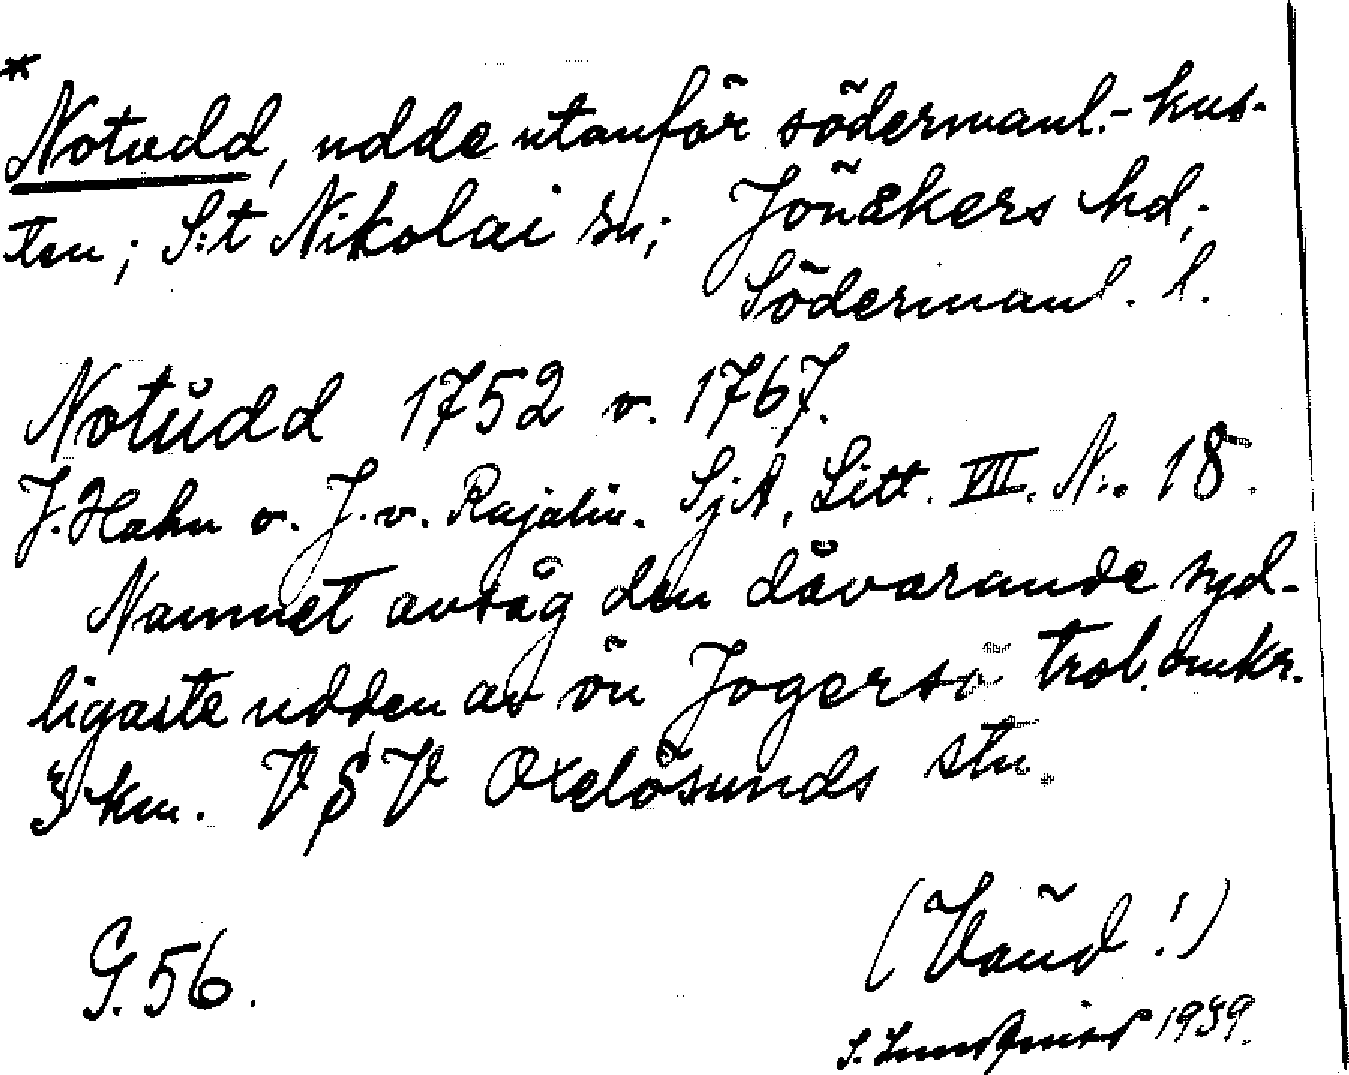 *
Notudd, udde utanför södermanl.-kus-
ten; S:t Nikolai sn; Jönåkers hd;
Södermanl. l.
Notudd 1752 o. 1767.
J. Hahn o. J. v. Rajalin. SjA, Litt. VII. N:o 18.
Namnet avsåg den dåvarande syd-
ligaste udden av ön Jogersö trol. omkr.
3 km. V S V Oxelösunds stn.
G. 56.
(Vänd!)
S. 1939.